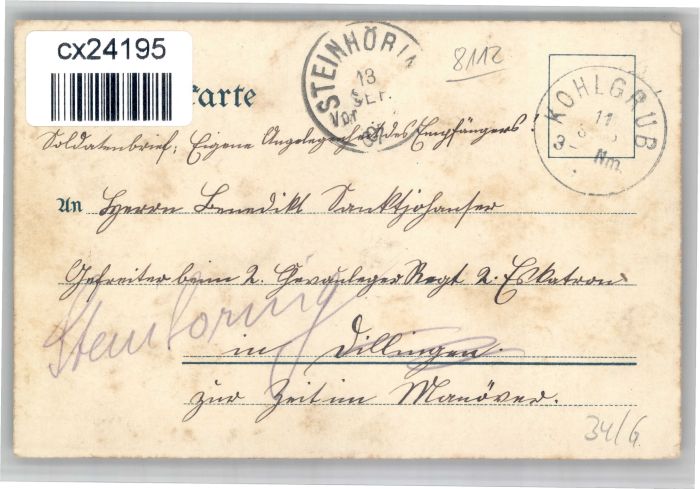 cx24195
8112
STEINHÖRIN
13
SEP.
Vor
KOHLGRUB
11
3
Nm.
Karte
Soldatenbrief; Eigene Angelegenheit des Empfängers!
An Herrn Benedikt Sanktjohanser
Gefreiter beim 2. Chevauleger Regt 2. Eskatron
in Dillingen.
zur Zeit im Manöver.
34/6